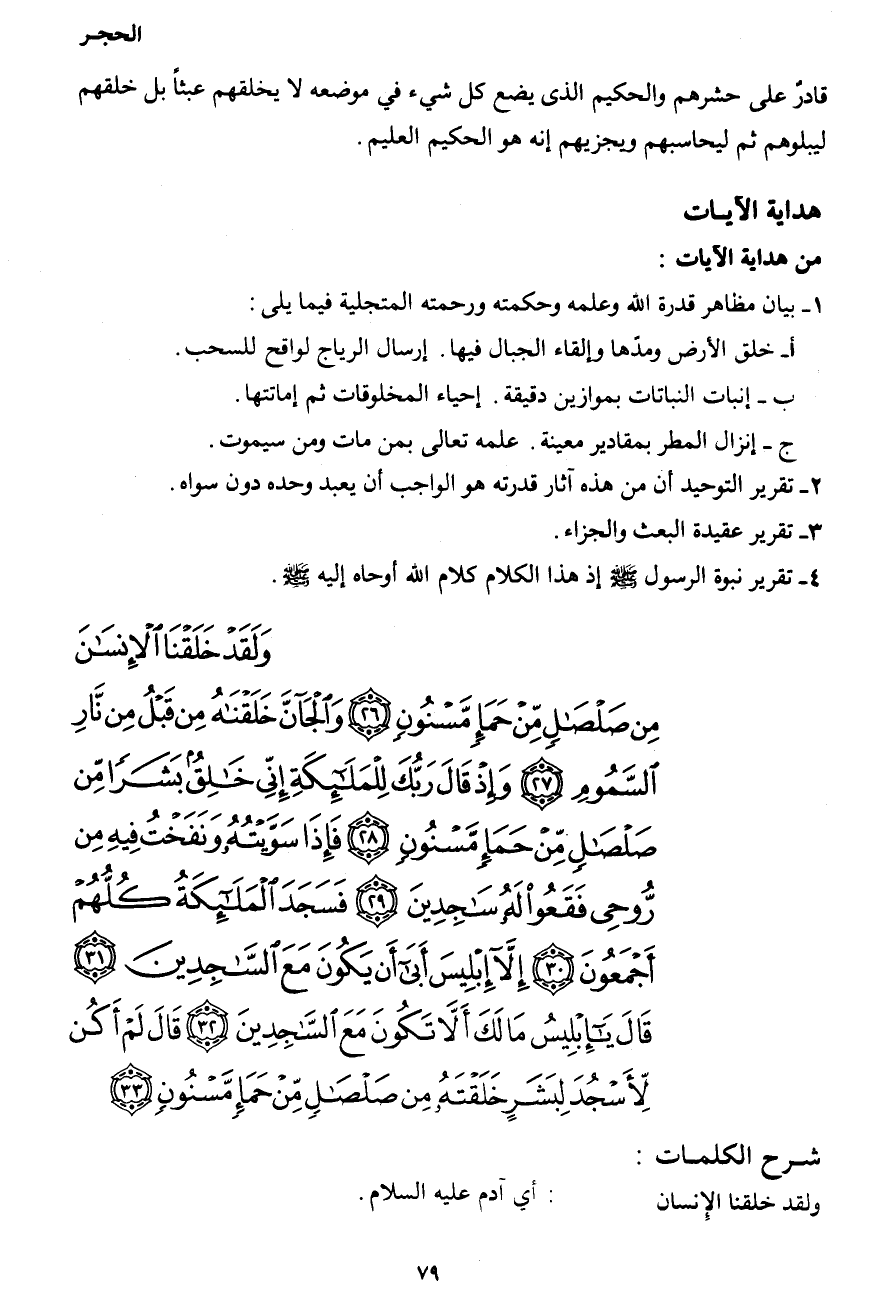 الحجـر
قادرٌ على حشرهم والحكيم الذى يضع كل شيء في موضعه لا يخلقهم عبثاً بل خلقهم
ليبلوهم ثم ليحاسبهم ويجزيهم إنه هو الحكيم العليم.
هداية الآيـات
من هداية الآيات :
١ـ بيان مظاهر قدرة الله وعلمه وحكمته ورحمته المتجلية فيما يلى :
أـ خلق الأرض ومدّها وإلقاء الجبال فيها. إرسال الرياج لواقح للسحب.
ب ـ إنبات النباتات بموازين دقيقة. إحياء المخلوقات ثم إماتتها.
ج ـ إنزال المطر بمقادير معينة. علمه تعالى بمن مات ومن سيموت.
٢ـ تقرير التوحيد أن من هذه آثار قدرته هو الواجب أن يعبد وحده دون سواه.
٣ـ تقرير عقيدة البعث والجزاء.
٤ـ تقرير نبوة الرسول ﷺ إذ هذا الكلام كلام الله أوحاه إليه ﷺ.
وَلَقَدْ خَلَقْنَا ٱلْإِنسَٰنَ
مِن صَلْصَٰلٍ مِّنْ حَمَإٍ مَّسْنُونٍ ٢٦ وَٱلْجَآنَّ خَلَقْنَٰهُ مِن قَبْلُ مِن نَّارِ
ٱلسَّمُومِ ٢٧ وَإِذْ قَالَ رَبُّكَ لِلْمَلَٰٓئِكَةِ إِنِّى خَٰلِقٌۢ بَشَرًا مِّن
صَلْصَٰلٍ مِّنْ حَمَإٍ مَّسْنُونٍ ٢٨ فَإِذَا سَوَّيْتُهُۥ وَنَفَخْتُ فِيهِ مِن
رُّوحِى فَقَعُوا۟ لَهُۥ سَٰجِدِينَ ٢٩ فَسَجَدَ ٱلْمَلَٰٓئِكَةُ كُلُّهُمْ
أَجْمَعُونَ ٣٠ إِلَّآ إِبْلِيسَ أَبَىٰٓ أَن يَكُونَ مَعَ ٱلسَّٰجِدِينَ ٣١
قَالَ يَٰٓإِبْلِيسُ مَا لَكَ أَلَّا تَكُونَ مَعَ ٱلسَّٰجِدِينَ ٣٢ قَالَ لَمْ أَكُن
لِّأَسْجُدَ لِبَشَرٍ خَلَقْتَهُۥ مِن صَلْصَٰلٍ مِّنْ حَمَإٍ مَّسْنُونٍ ٣٣
شـرح الكلمـات :
ولقد خلقنا الإنسان : أي آدم عليه السلام.
٧٩